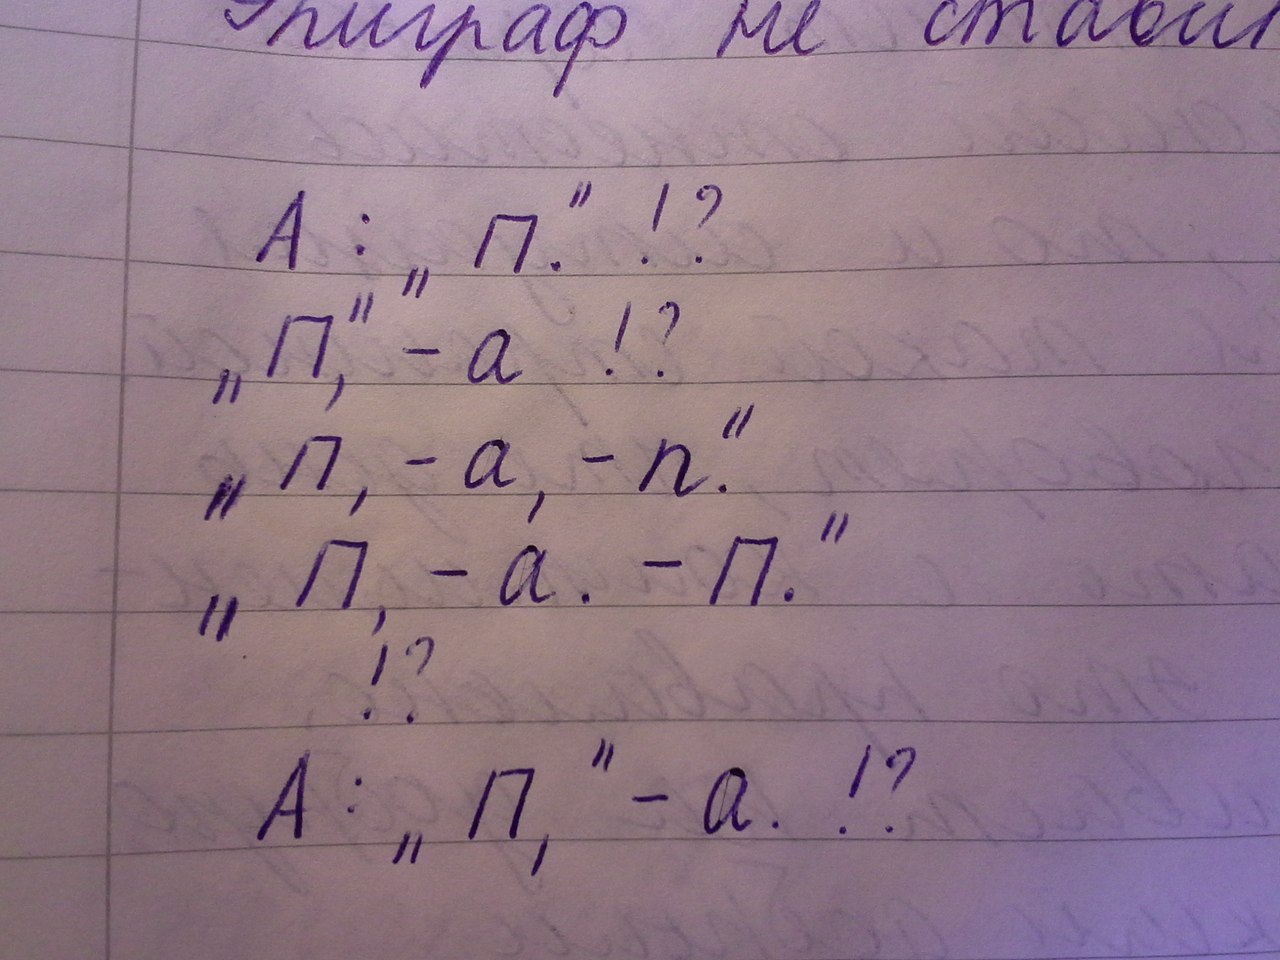 Эпиграф не ставит
А: „П.“ !?
„П,“ – а !?
„П, – а, – п.“
„П, – а. – П.“
!?
А: „П,“ – а. !?